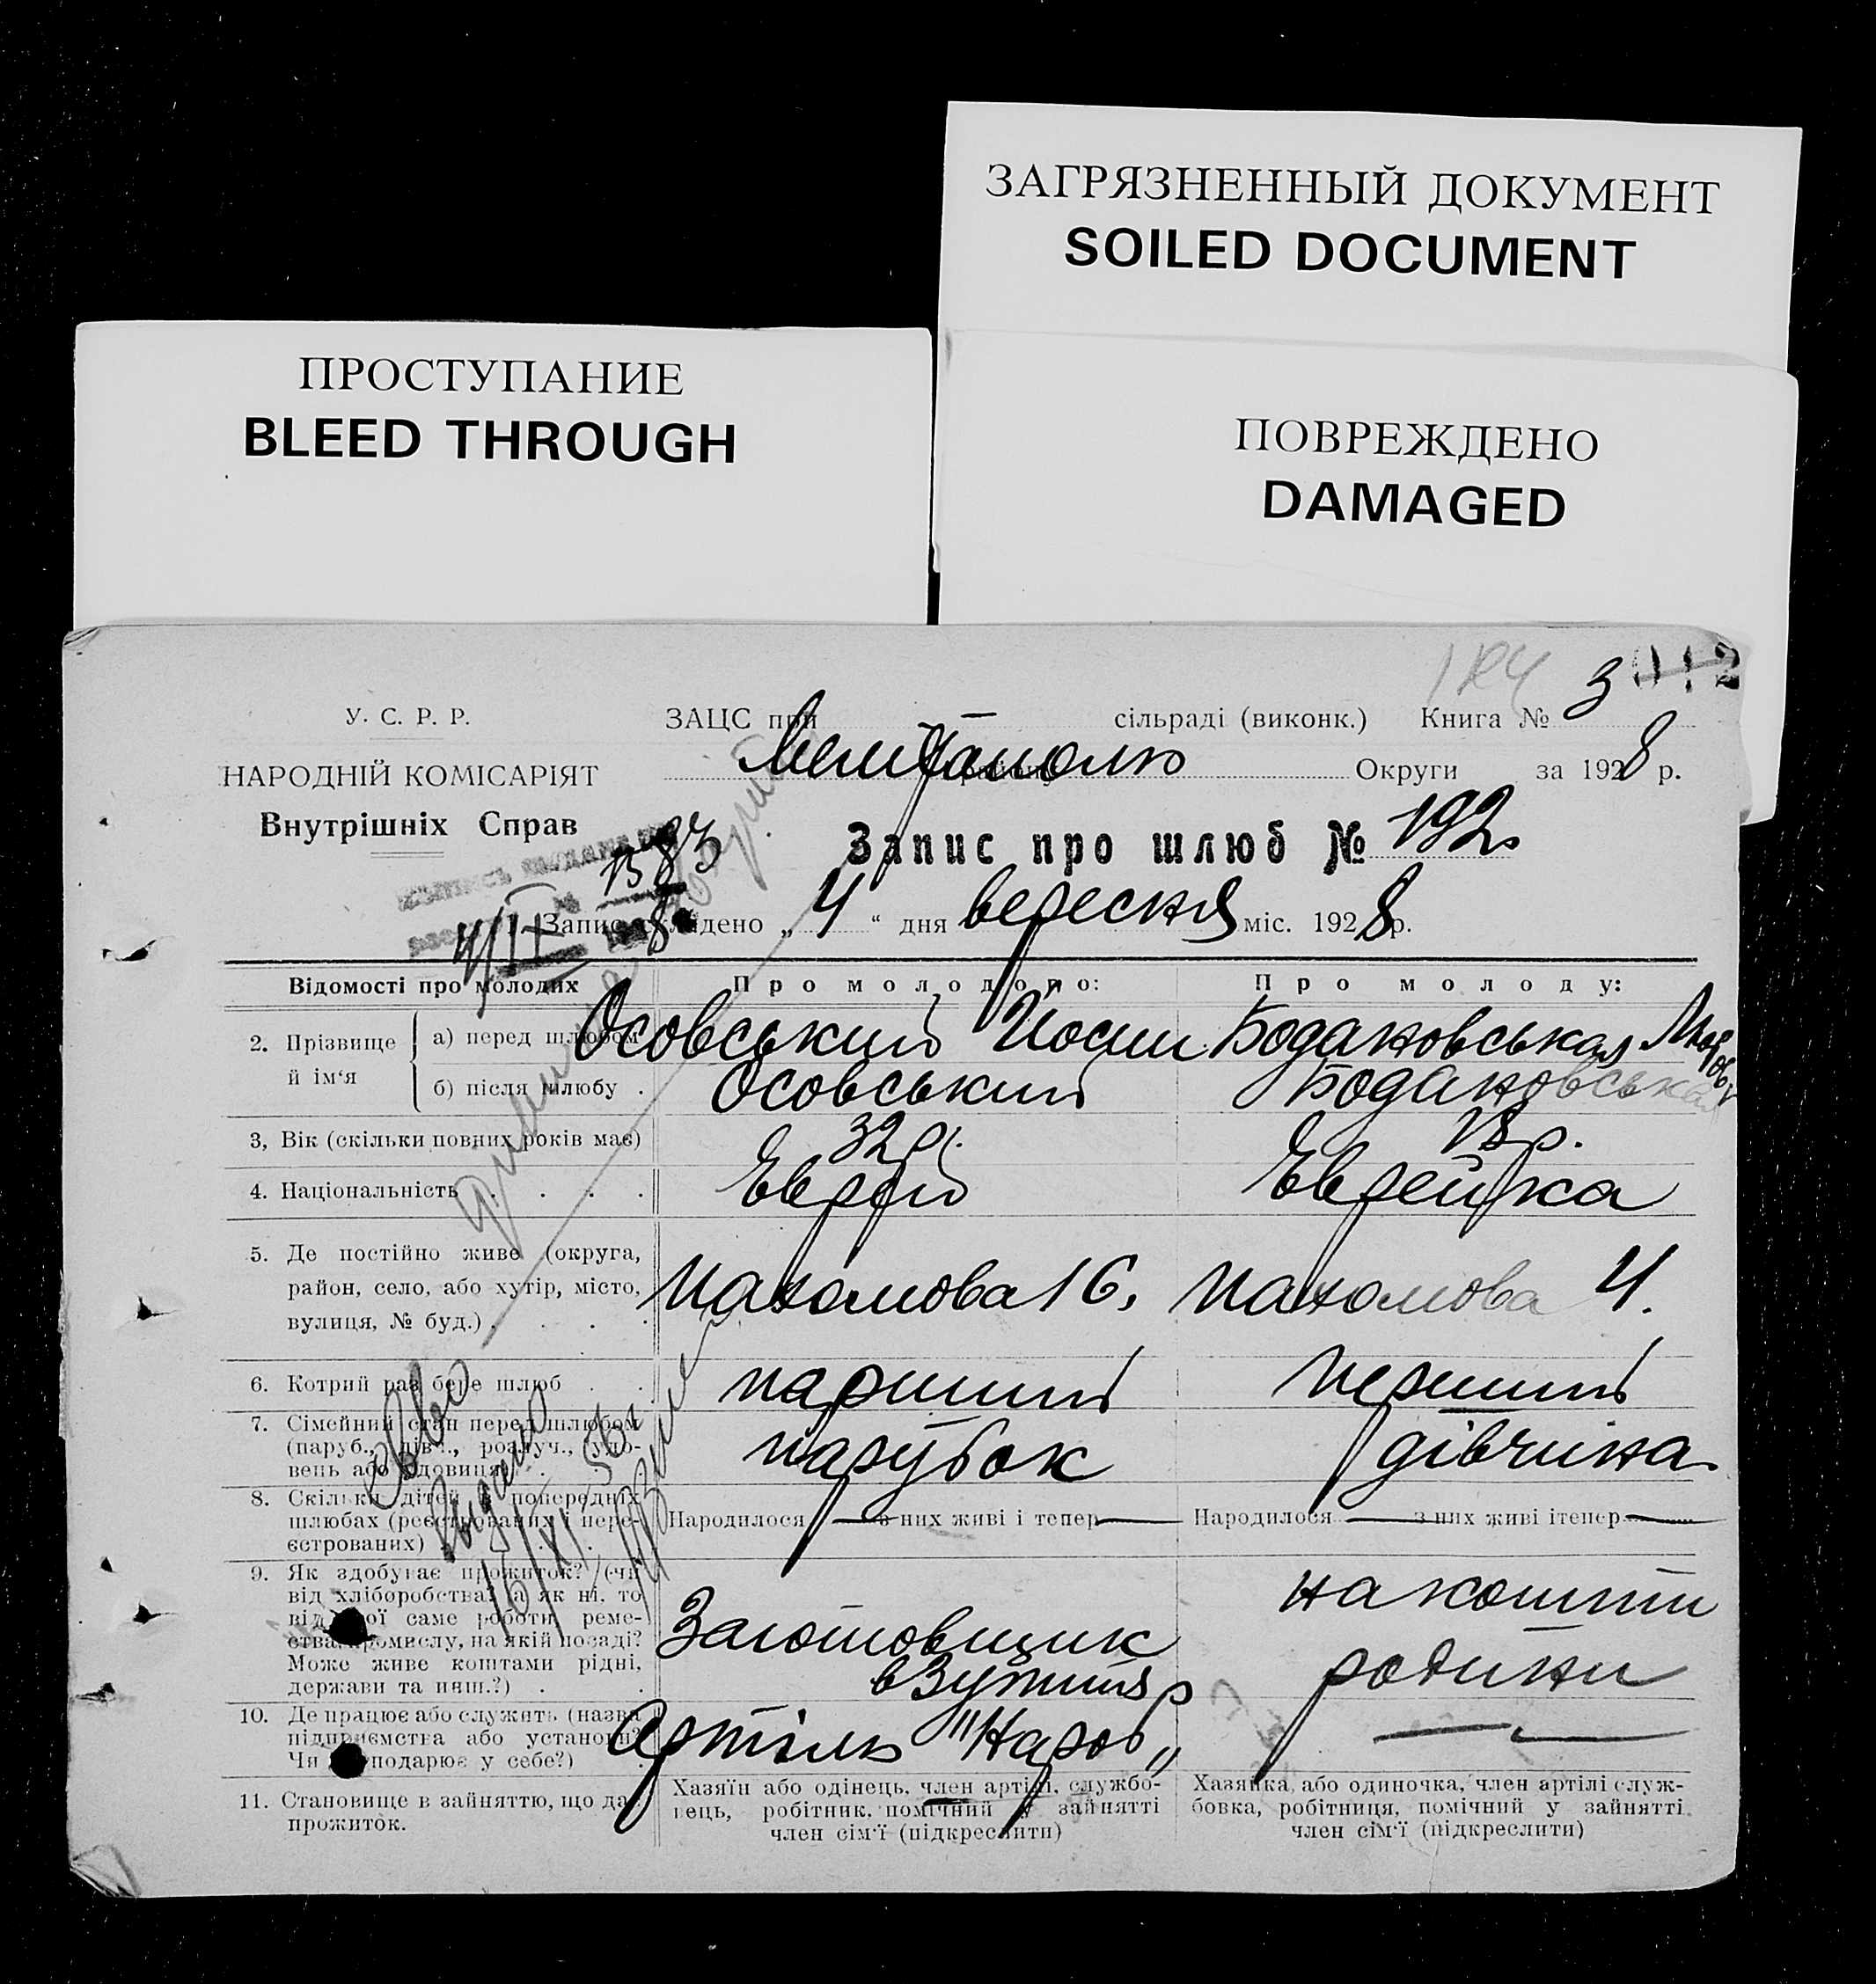 ЗАГРЯЗНЕННЫЙ ДОКУМЕНТ
SOILED DOCUMENT
ПРОСТУПАНИЕ
BLEED THROUGH
ПОВРЕЖДЕНО
DAMAGED
У. С. Р. Р.
НАРОДНІЙ КОМІСАРІЯТ
Внутрішніх Справ
ЗАЦС при — сільраді (виконк.) Книга № 3
Округи за 1928 р.
Запис про шлюб № 192
1583
1. Запис складено „4“ дня вересня міс. 1928 р.
Відомості про молодих
Про молодого:
Про молоду:
2. Прізвище й ім‘я
а) перед шлюбом
Осовський Йосип
Бодановськая
б) після шлюбу .
Осовський
Бодановськая
3, Вік (скільки повних років має)
32 р.
18 р.
4. Національність . . . .
Еврей
Еврейка
5. Де постійно живе (округа,
район, село, або хутір, місто,
вулиця, № буд.) . . . .
Пахомова 16,
Пахомова 4.
6. Котрий раз бере шлюб . .
парший
перший
7. Сімейний стан перед шлюбом
(паруб., дівч., розлуч., удо-
вець або вдовиця) . .
парубок
дівчина
8. Скільки дітей в попередніх
шлюбах (реєстрованих і нере-
єстрованих)
Народилося — з них живі і тепер —
Народилося — з них живі ітепер —
9. Як здобуває прожиток? (чи
від хліборобства? а як ні, то
від якої саме роботи, реме-
ства, промислу, на якій посаді?
Може живе коштами рідні,
держави та инш.?) . .
Заготовщик
взуття
на кошти
родини
10. Де працює або служить (назва
підприємства або установи?
Чи господарює у себе?) .
Артіль
— —
11. Становище в зайняттю, що дає
прожиток.
Хазяїн або одінець, член артілі, службо-
вець, робітник, помічний у зайнятті
член сім‘ї (підкреслити)
Хазяйка, або одиночка, член артілі служ-
бовка, робітниця, помічний у зайнятті
член сім‘ї (підкреслити)